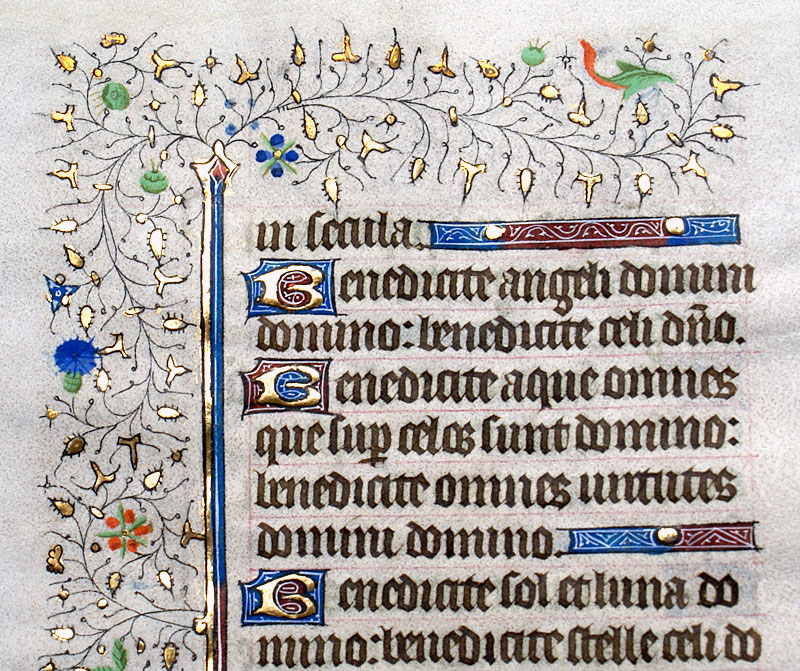 in secula.
Benedicite angeli domini
domino: benedicite celi dño.
Benedicite aque omnes
que sup celos sunt domino:
benedicite omnes uirtutes
domini domino.
Benedicite sol et luna do
mino: benedicite stelle celi do